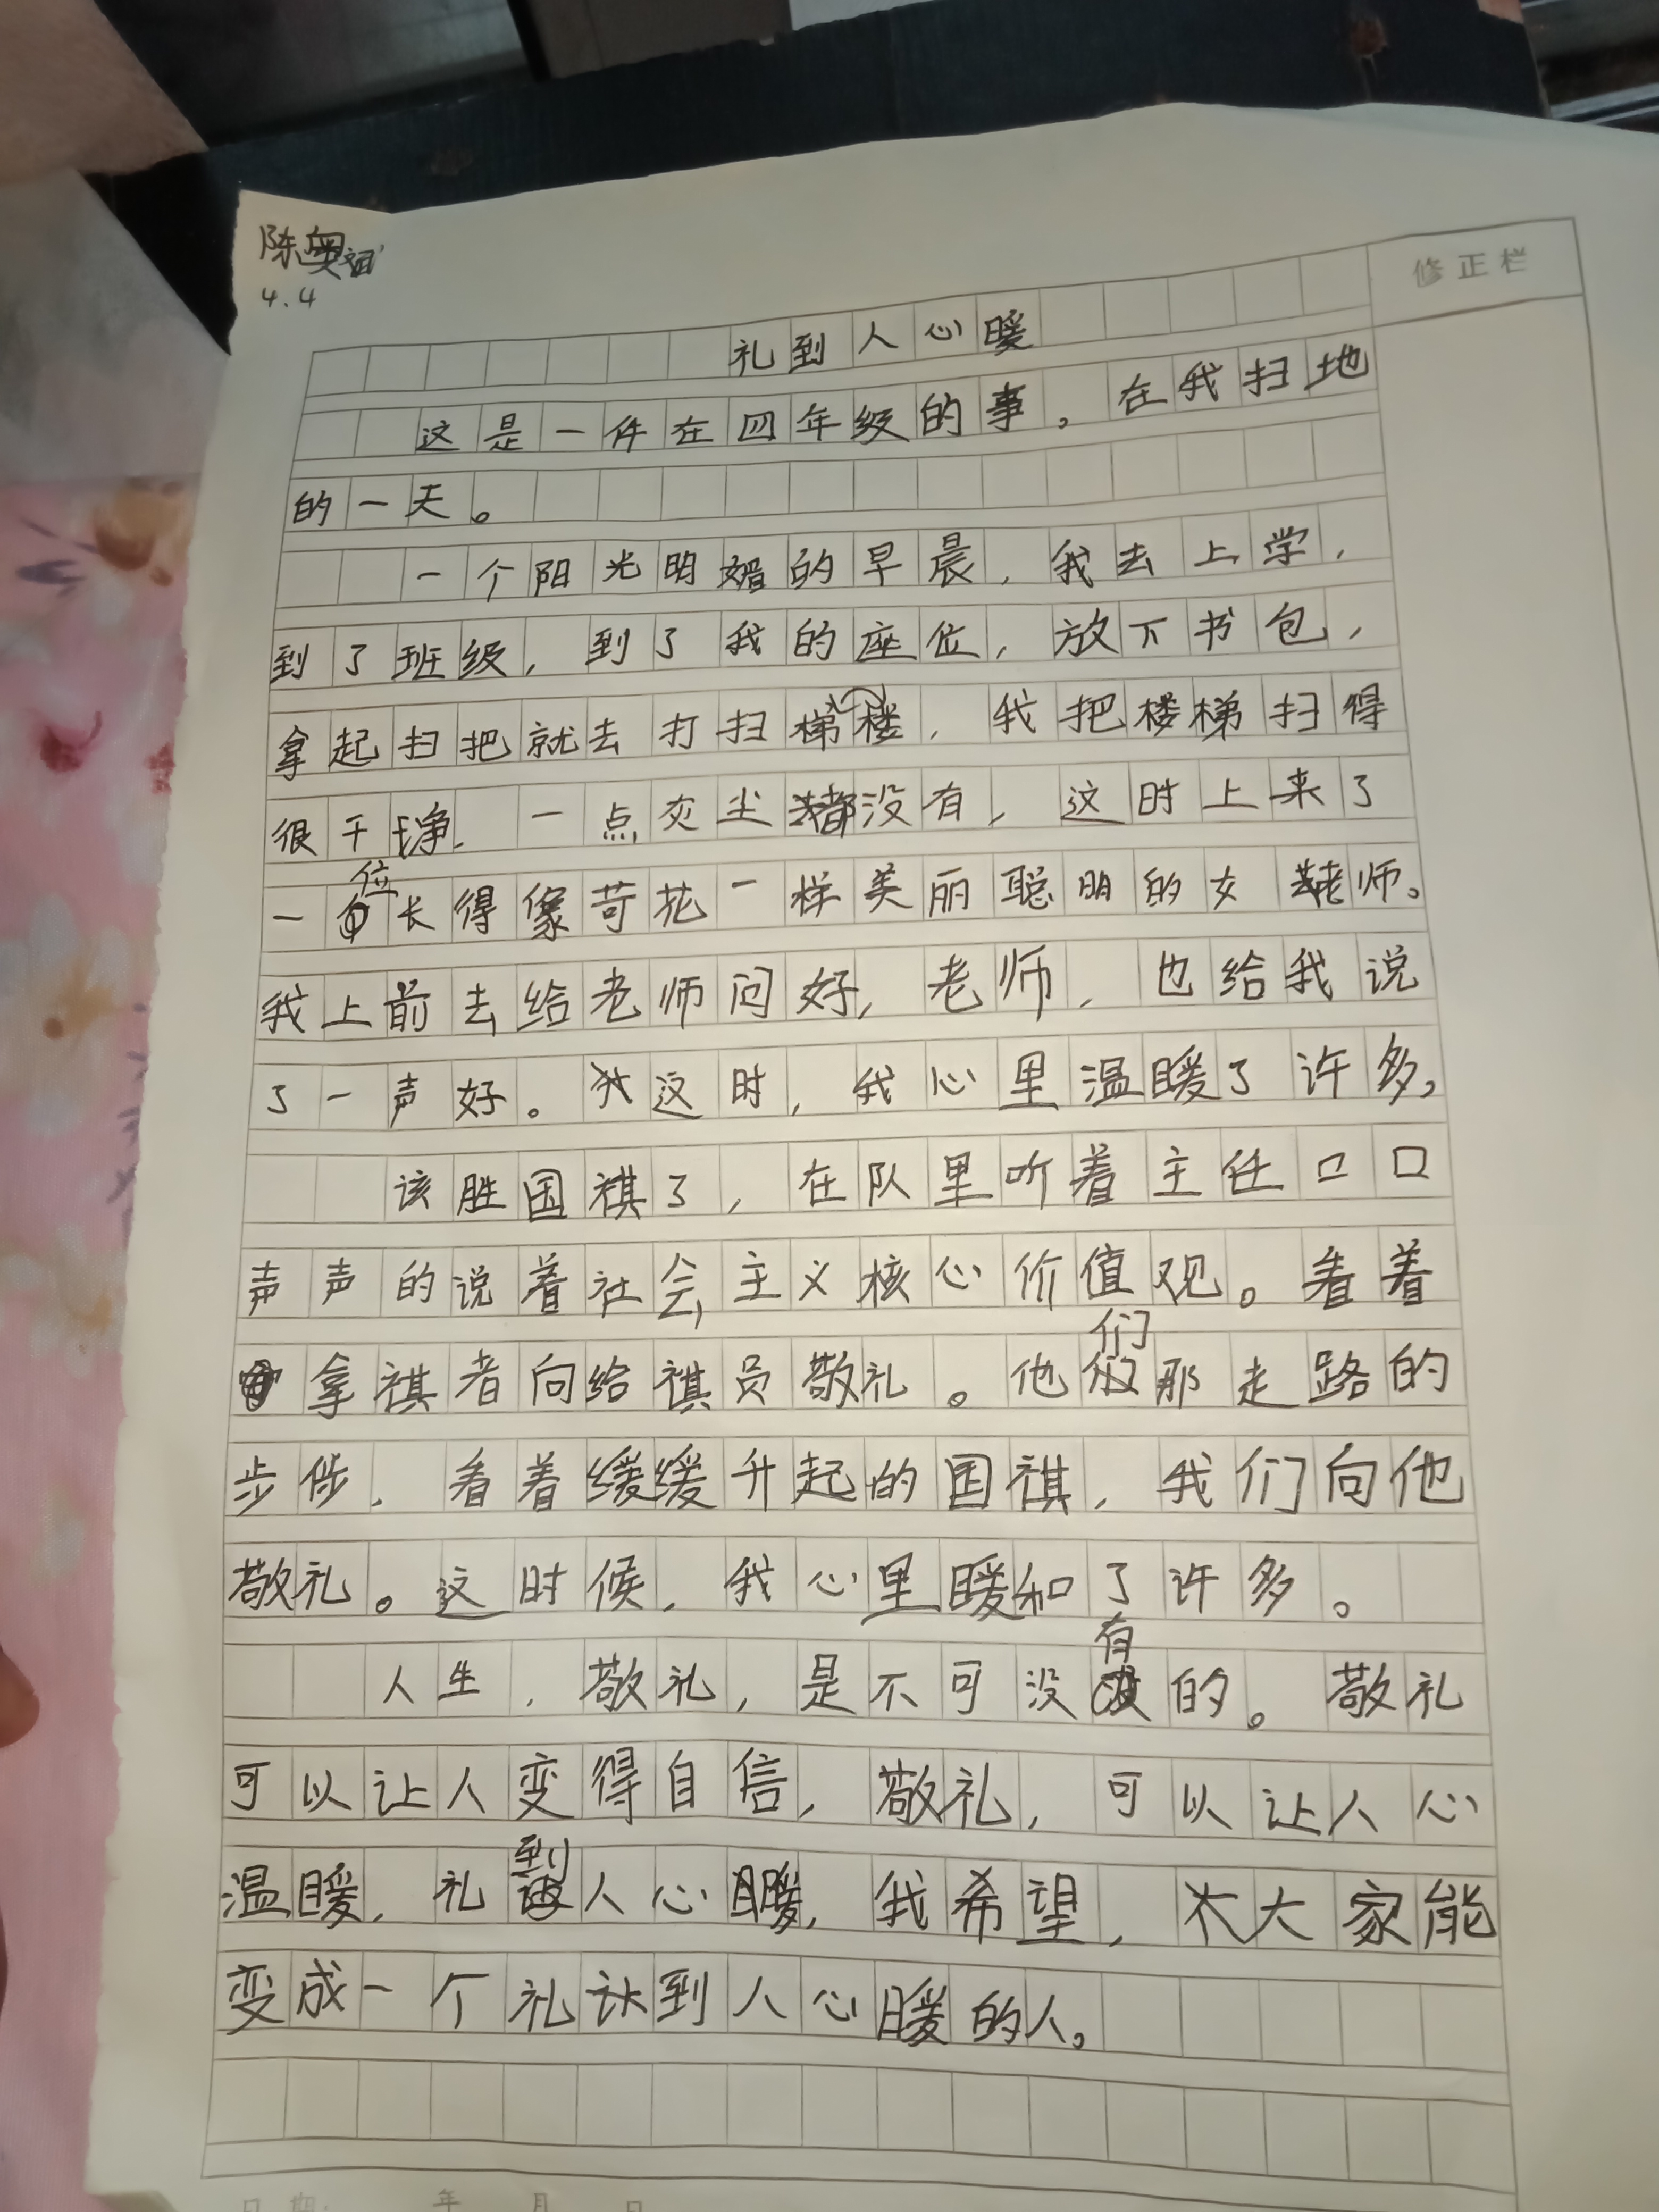 陈奥
4.4
修正栏
礼到人心暖
这是一件在四年级的事。在我扫地
的一天。
一个阳光明媚的早晨，我去上学，
到了班级，到了我的座位，放下书包，
拿起扫把就去打扫梯楼，我把楼梯扫得
很干净，一点灰尘都没有，这时上来了
一位长得像苛花一样美丽聪明的女老师。
我上前去给老师问好，老师，也给我说
了一声好。这时，我心里温暖了许多，
该胜国祺了，在队里听着主任口口
声声的说着社会主义核心价值观。看着
拿祺者向给祺员敬礼。他们那走路的
步伐，看着缓缓升起的国祺，我们向他
敬礼。这时候，我心里暖和了许多。
人生，敬礼，是不可没有的。敬礼
可以让人变得自信，敬礼，可以让人心
温暖，礼到人心暖，我希望，大家能
变成一个礼到人心暖的人。
日期： 年 月 日